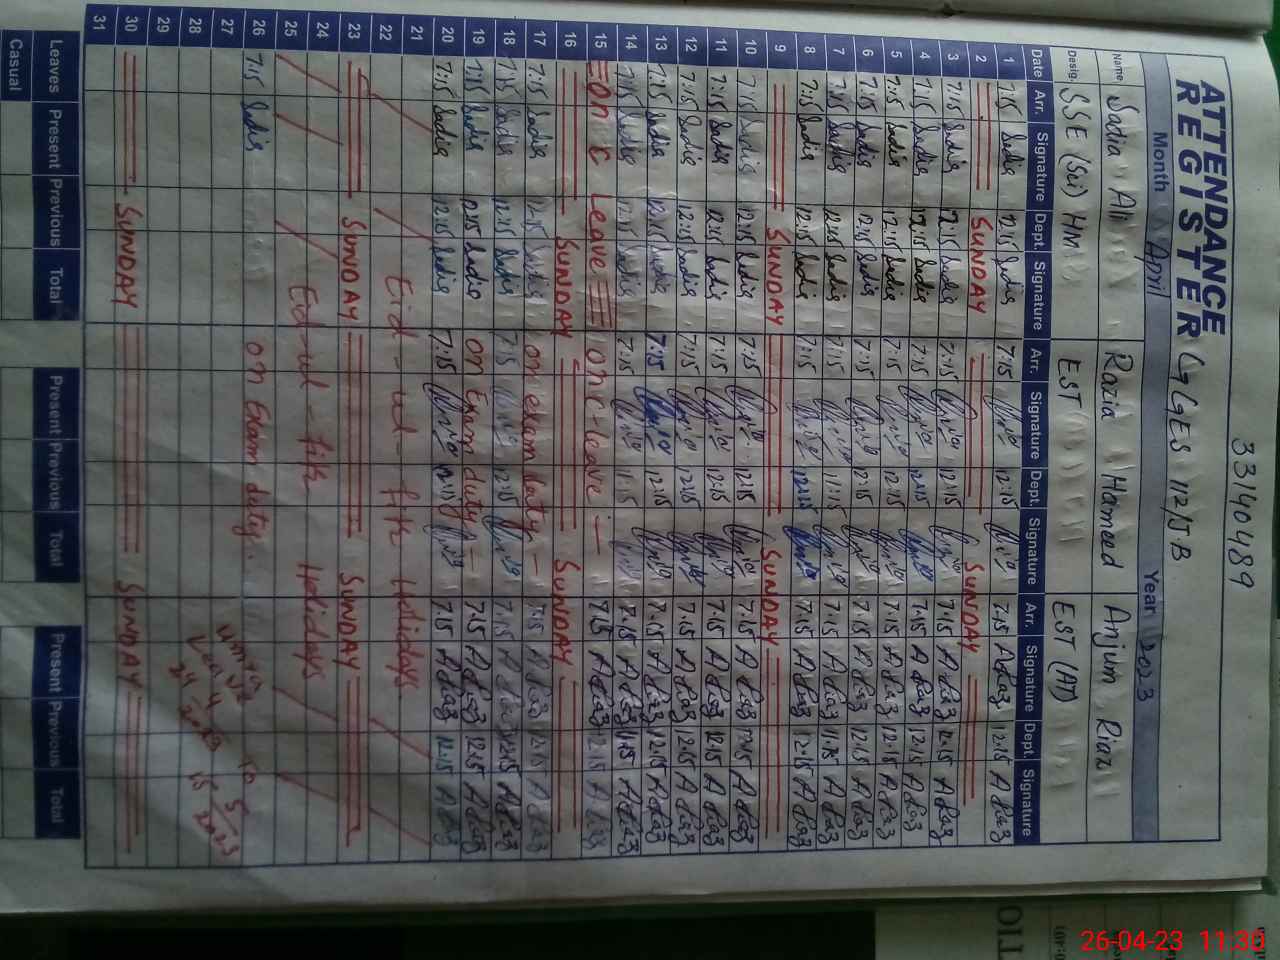 33140489
ATTENDANCE
REGISTER GGES 112/JB
Month April Year 2023
Name Sadia Ali Razia Hameed Anjum Riaz
Desig. SSE (Sci) HM EST EST (AT)
Date Arr. Signature Dept. Signature Arr. Signature Dept. Signature Arr. Signature Dept. Signature
1 7:15 Sadia 12:15 Sadia 7:15 12:15 7:15 A Riaz 12:15 A Riaz
2 SUNDAY SUNDAY
3 7:15 Sadia 12:15 Sadia 7:15 12:15 7:15 A Riaz 12:15 A Riaz
4 7:15 Sadia 12:15 Sadia 7:15 12:15 7:15 A Riaz 12:15 A Riaz
5 7:15 Sadia 12:15 Sadia 7:15 12:15 7:15 A Riaz 12:15 A Riaz
6 7:15 Sadia 12:15 Sadia 7:15 12:15 7:15 A Riaz 12:15 A Riaz
7 7:15 Sadia 12:15 Sadia 7:15 11:15 7:15 A Riaz 11:15 A Riaz
8 7:15 Sadia 12:15 Sadia 7:15 12:15 7:15 A Riaz 12:15 A Riaz
9 SUNDAY SUNDAY
10 7:15 Sadia 12:15 Sadia 7:15 12:15 7:15 A Riaz 12:15 A Riaz
11 7:15 Sadia 12:15 Sadia 7:15 12:15 7:15 A Riaz 12:15 A Riaz
12 7:15 Sadia 12:15 Sadia 7:15 12:15 7:15 A Riaz 12:15 A Riaz
13 7:15 Sadia 12:15 Sadia 7:15 12:15 7:15 A Riaz 12:15 A Riaz
14 7:15 Sadia Sadia 7:15 11:15 7:15 A Riaz 11:15 A Riaz
15 on C Leave on c-leave 7:15 A Riaz 12:15 A Riaz
16 SUNDAY SUNDAY
17 7:15 Sadia 12:15 Sadia on exam duty 7:15 A Riaz 12:15 A Riaz
18 7:15 Sadia 12:15 Sadia 7:15 12:15 7:15 A Riaz 12:15 A Riaz
19 7:15 Sadia 12:15 Sadia on Exam duty 7:15 A Riaz 12:15 A Riaz
20 7:15 Sadia 12:15 Sadia 7:15 12:15 7:15 A Riaz 12:15 A Riaz
21
22 Eid-ul-fitr Holidays
23 SUNDAY SUNDAY
24 Eid-ul-fitr Holidays
25
26 7:15 Sadia on Exam duty.
27
28
29
30 SUNDAY SUNDAY
31
Leaves Present Previous Total Present Previous Total Present Previous Total
Casual
26-04-23 11:30